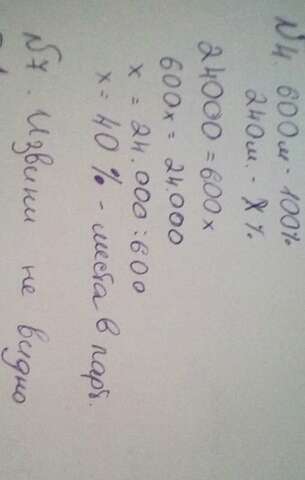 N4. 600м - 100%
240м. - X%
24000 = 600x
600x = 24000
x = 24.000 : 600
x = 40 % - места в парт.
N7. Извини не видно